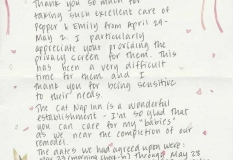 Thank you so much for
taking such excellent care of
Pepper & Emily from April 29-
May 2. I particularly
appreciate your providing the
privacy screen for them. This
has been a very difficult
time for them and I
thank you for being sensitive
to their needs.
The Cat Nap Inn is a wonderful
establishment - I'm so glad that
you can care for my "babies"
as we near the completion of our
remodel.
The dates we had agreed upon were:
May 23 (morning check-in) through May 28